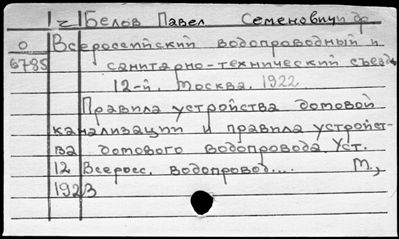 г Белов Павел Семенович и др.
О Всероссийский водопроводный и
6785 санитарно-технический съезд
12-й. Москва. 1922
Правила устройства домовой
канализации и правила устройст-
ва домового водопровода. Уст.
12 Всеросс. водопровод.... М.,
1923